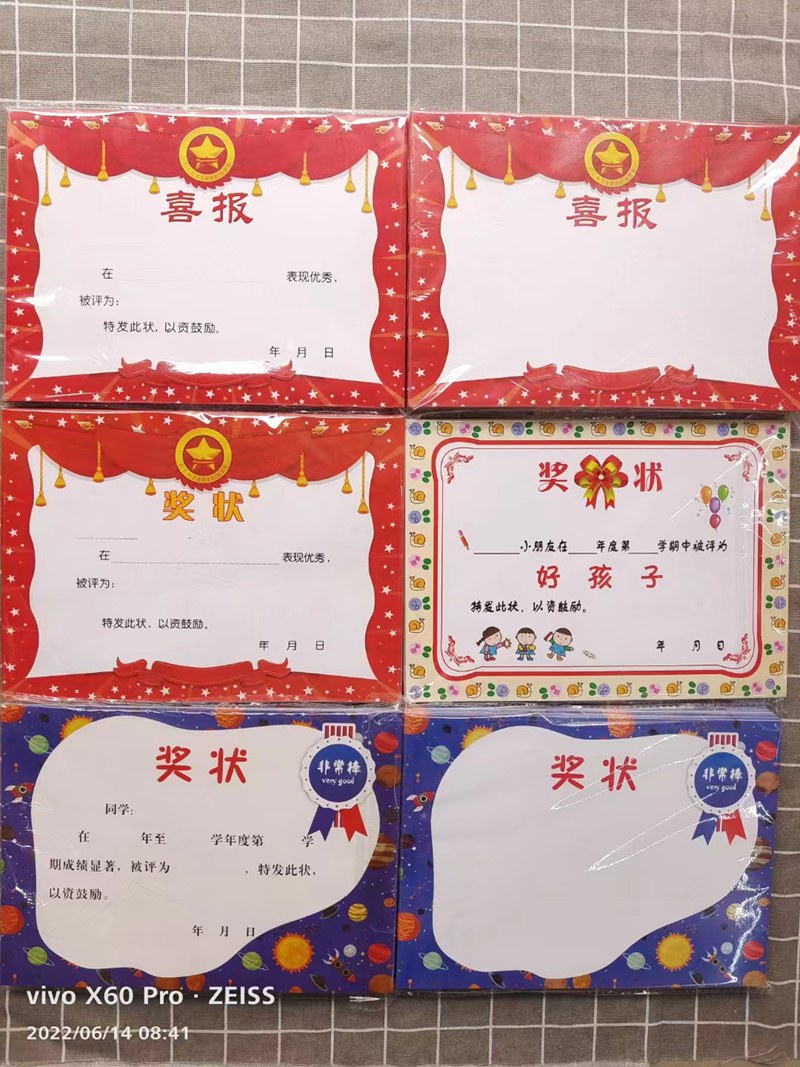 喜报
在 表现优秀，
被评为：
特发此状，以资鼓励。
年 月 日
喜报
奖状
在 表现优秀，
被评为：
特发此状，以资鼓励。
年 月 日
奖状
小朋友在 年度第 学期中被评为
好孩子
特发此状，以资鼓励。
年 月 日
奖状
非常棒
very good
同学：
在 年至 学年度第 学
期成绩显著，被评为 ，特发此状，
以资鼓励。
年 月 日
奖状
非常棒
very good
vivo X60 Pro · ZEISS
2022/06/14 08:41